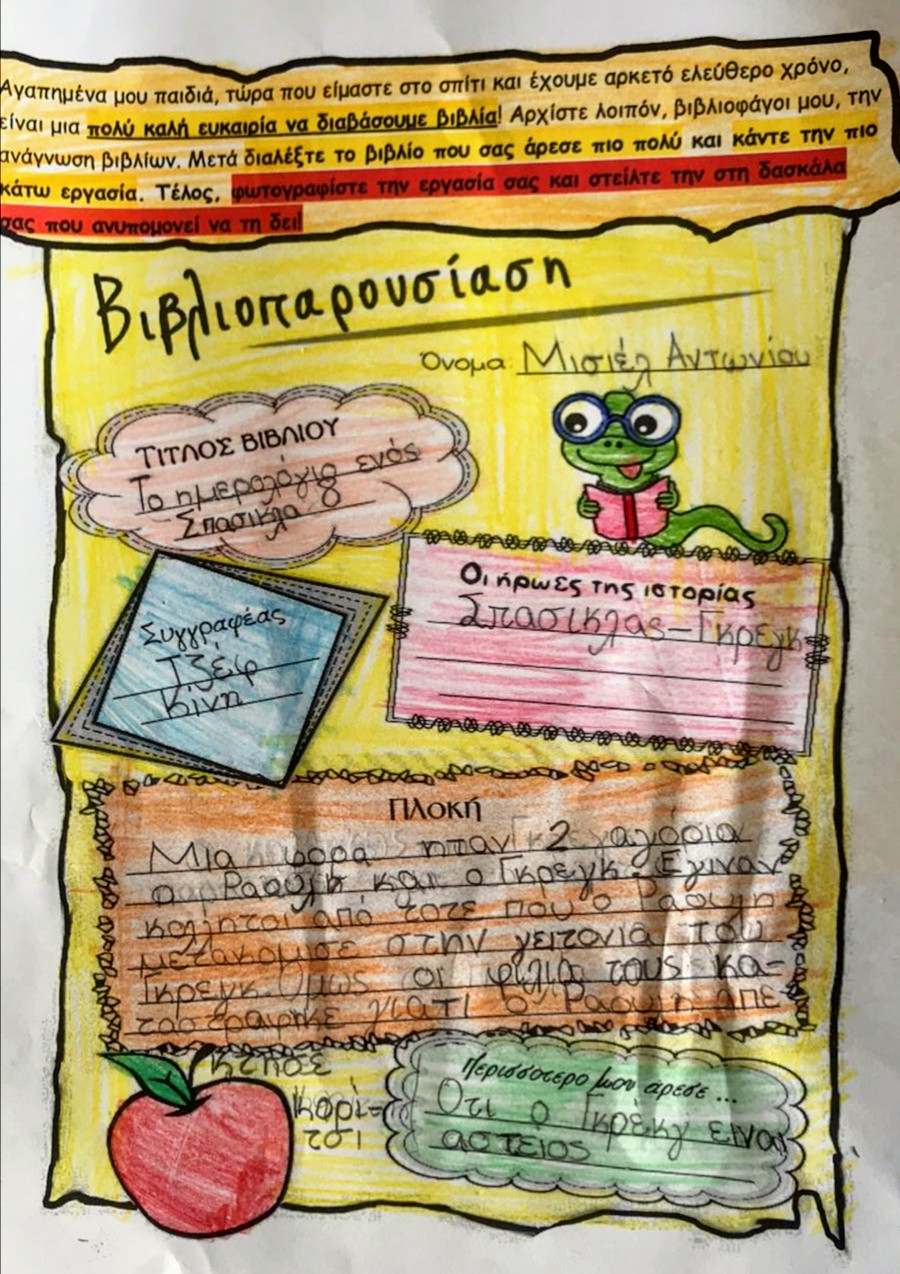 Αγαπημένα μου παιδιά, τώρα που είμαστε στο σπίτι και έχουμε αρκετό ελεύθερο χρόνο,
είναι μια πολύ καλή ευκαιρία να διαβάσουμε βιβλία! Αρχίστε λοιπόν, βιβλιοφάγοι μου, την
ανάγνωση βιβλίων. Μετά διαλέξτε το βιβλίο που σας άρεσε πιο πολύ και κάντε την πιο
κάτω εργασία. Τέλος, φωτογραφίστε την εργασία σας και στείλτε την στη δασκάλα
σας που ανυπομονεί να τη δει!
Βιβλιοπαρουσίαση
Όνομα Μισιέλ Αντωνίου
ΤΙΤΛΟΣ ΒΙΒΛΙΟΥ
Το ημερολόγιο ενός
Σπασικλα 8
Οι ήρωες της ιστορίας
Σπασικλας-Γκρεγκ
Συγγραφέας
Τζέφ
Κίνη
Πλοκή
Μια φορα ηταν 2 αγόρια
ο Ραουλη και ο Γκρεγκ. Εγιναν
κολητοι από τοτε που ο Ραουλη
μετακομισε στην γειτονια του
Γκρεγκ. Ομως οι φιλια τους κα-
ταστραφηκε γιατι ο Ραουλη απε
κτησε
κορι-
τσι
Περισσότερο μου άρεσε ...
Οτι ο Γκρέκγ ειναι
αστειος